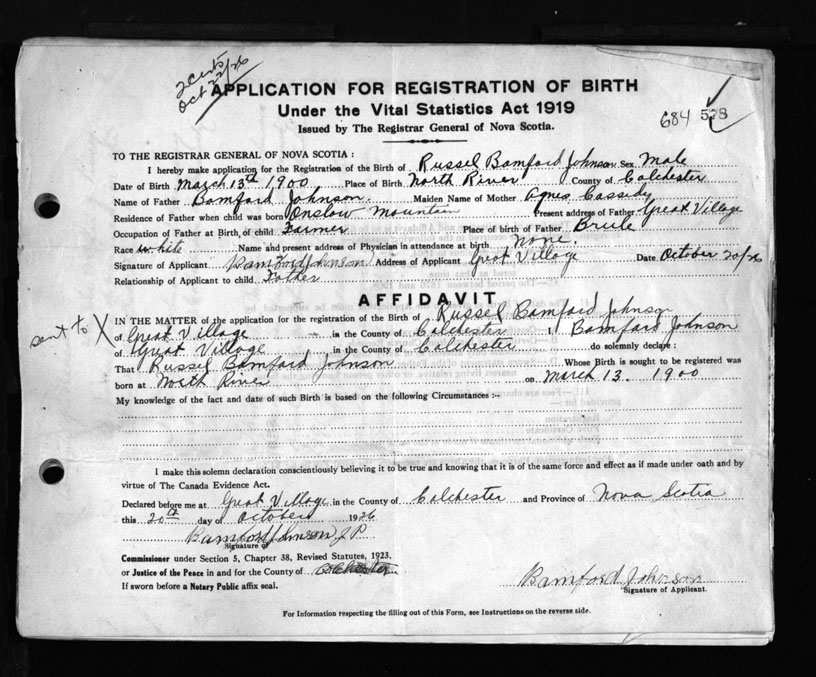 2 Certs
Oct 22/26
APPLICATION FOR REGISTRATION OF BIRTH
Under the Vital Statistics Act 1919
Issued by The Registrar General of Nova Scotia.
684 578
TO THE REGISTRAR GENERAL OF NOVA SCOTIA :
I hereby make application for the Registration of the Birth of Russel Bamford Johnson Sex Male
Date of Birth March 13th 1900 Place of Birth North River County of Colchester
Name of Father Bamford Johnson. Maiden Name of Mother Agnes Cassidy
Residence of Father when child was born Onslow Mountain Present address of Father Great Village
Occupation of Father at Birth of child Farmer Place of birth of Father Brule
Race white Name and present address of Physician in attendance at birth None.
Signature of Applicant Bamford Johnson Address of Applicant Great Village Date October 20/26
Relationship of Applicant to child Father
AFFIDAVIT
IN THE MATTER of the application for the registration of the Birth of Russel Bamford Johnson
sent to X of Great Village in the County of Colchester I Bamford Johnson
of Great Village in the County of Colchester do solemnly declare :
That Russel Bamford Johnson Whose Birth is sought to be registered was
born at North River on March 13. 1900
My knowledge of the fact and date of such Birth is based on the following Circumstances :-
I make this solemn declaration conscientiously believing it to be true and knowing that it is of the same force and effect as if made under oath and by
virtue of The Canada Evidence Act.
Declared before me at Great Village in the County of Colchester and Province of Nova Scotia
this 20th day of October 1926
Bamford Johnson J P
Signature of
Commissioner under Section 5, Chapter 38, Revised Statutes, 1923.
or Justice of the Peace in and for the County of Colchester
If sworn before a Notary Public affix seal.
Bamford Johnson
Signature of Applicant.
For Information respecting the filling out of this Form, see Instructions on the reverse side.